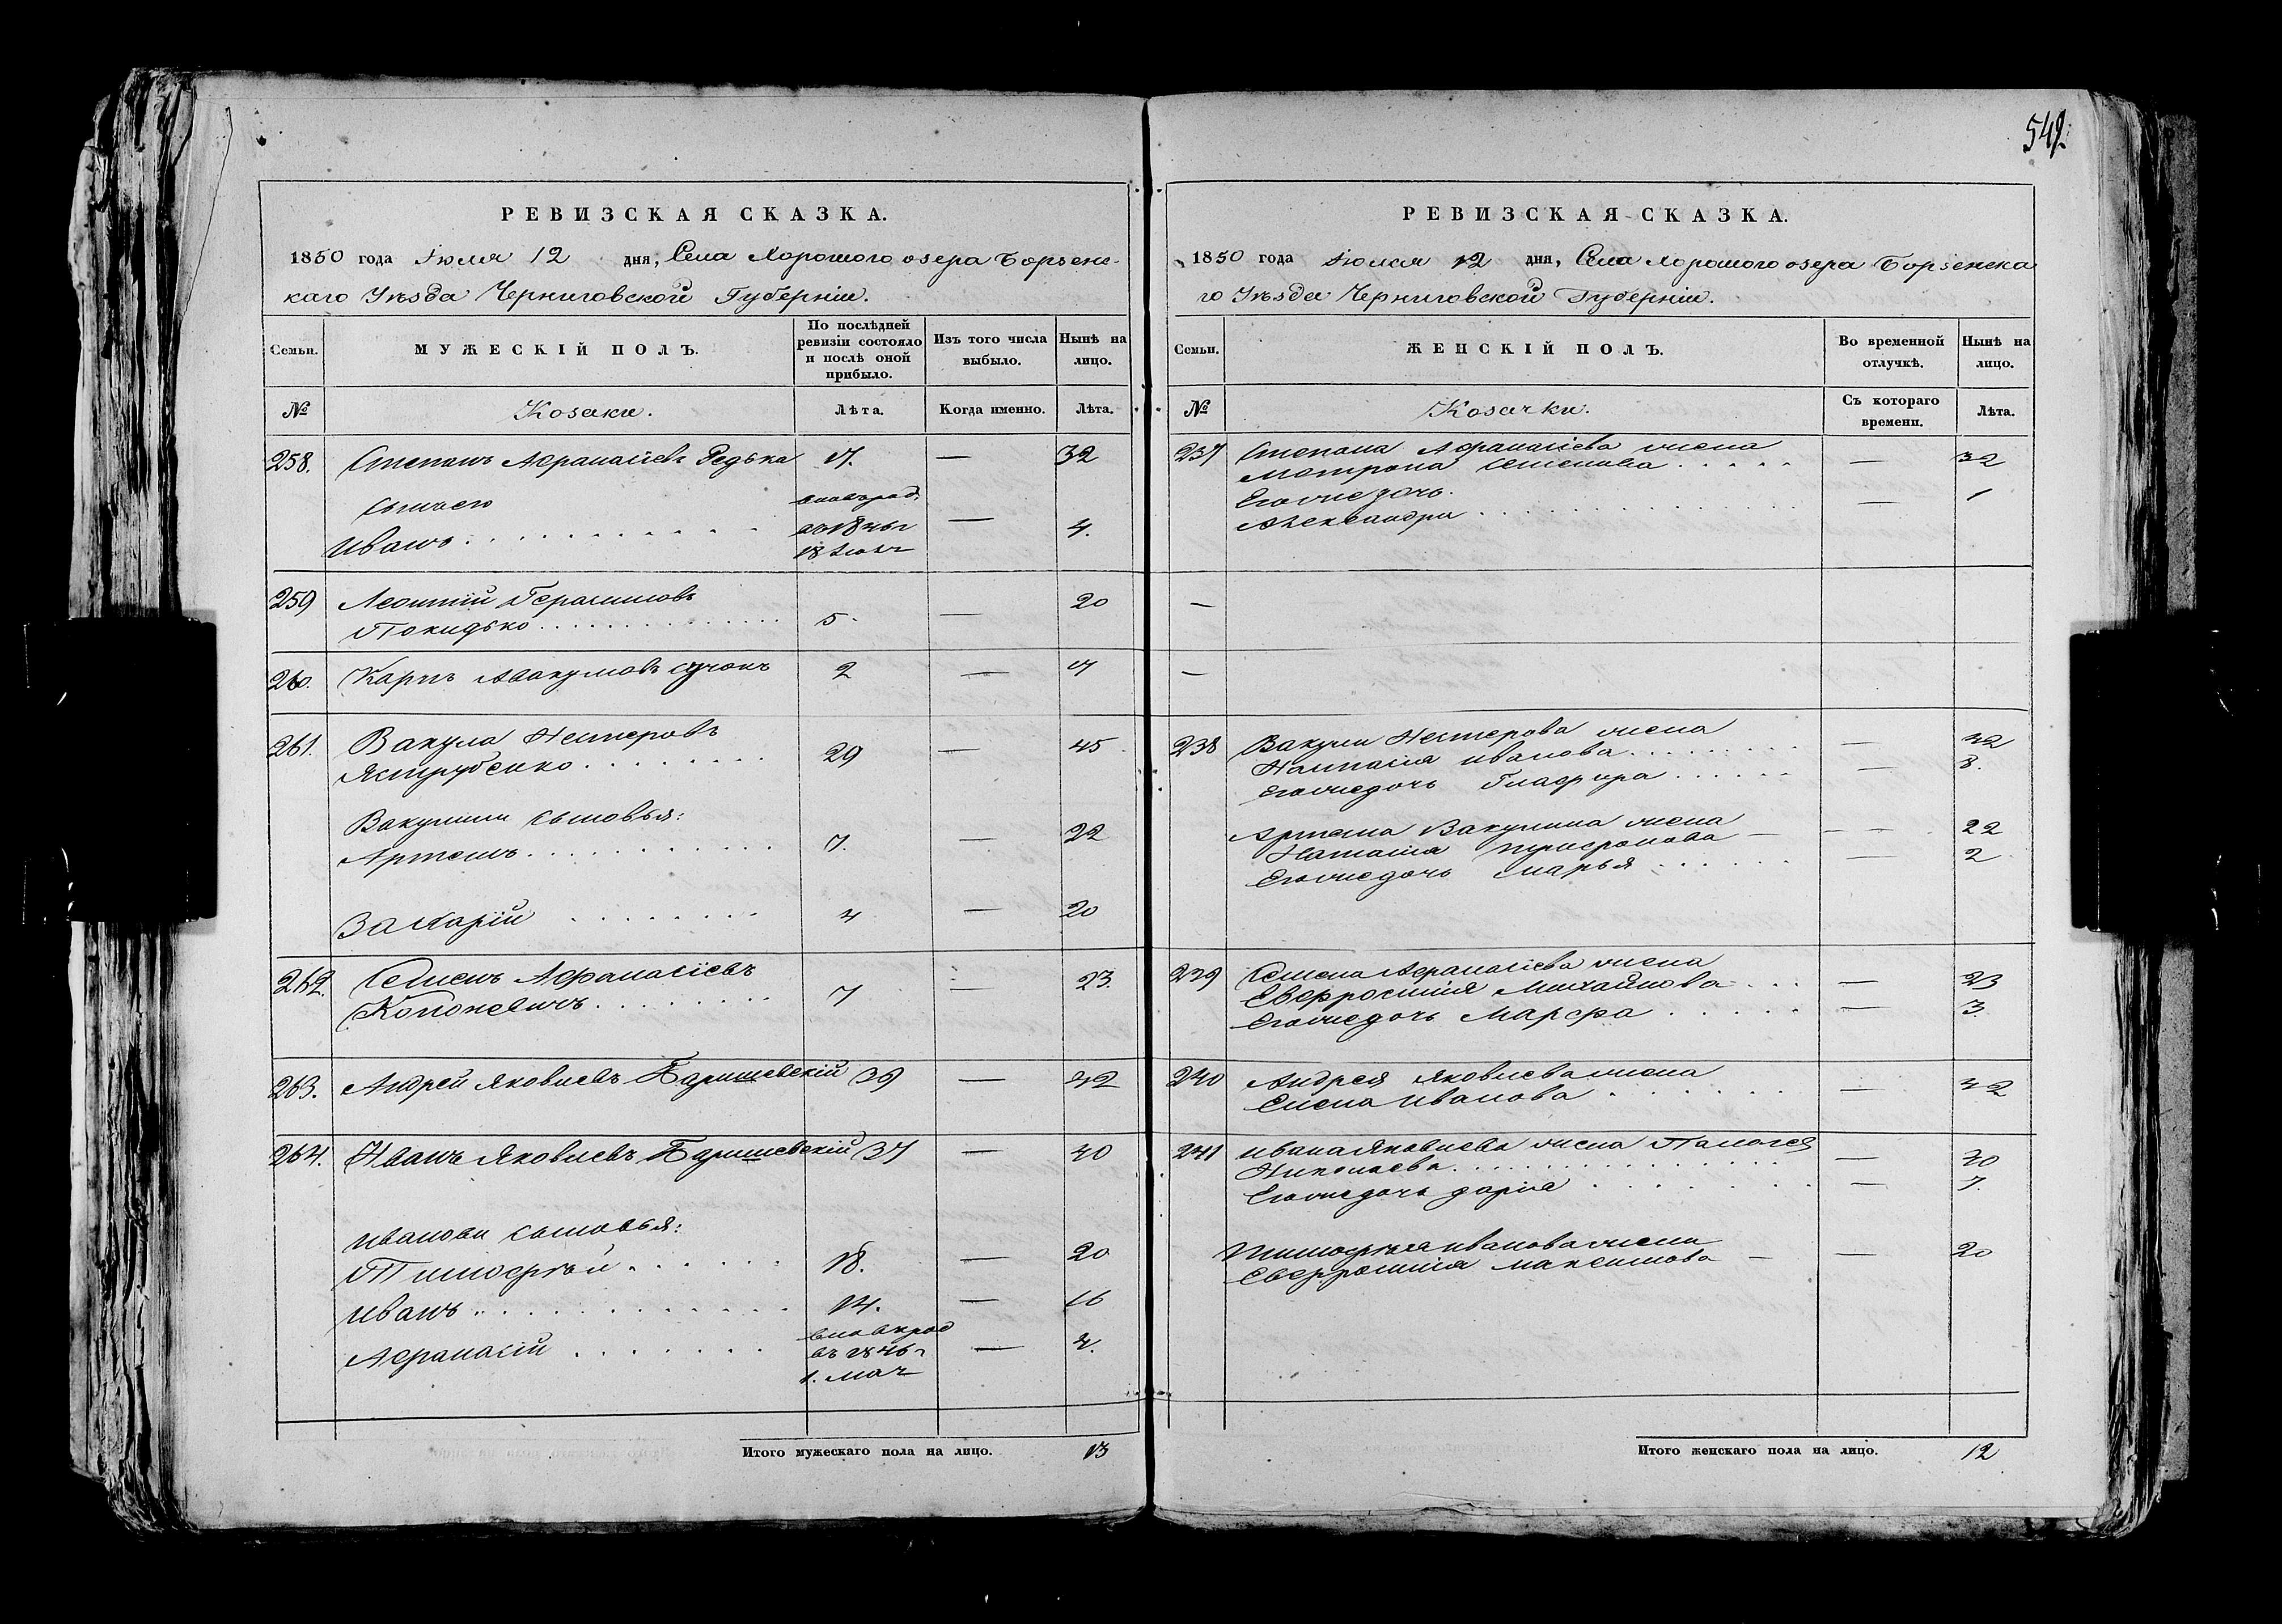 549.
РЕВИЗСКАЯ СКАЗКА.
1850 года Іюля 12 дня, Села Хорошого озера Борзенс-
каго Уѣзда Черниговской Губерніи.
Семьи.
МУЖЕСКІЙ ПОЛЪ.
По послѣдней ревизіи состояло и послѣ оной прибыло.
Изъ того числа выбыло.
Нынѣ на лицо.
№
Козаки.
Лѣта.
Когда именно.
Лѣта.
258. Степанъ Афанасіевъ Редька — 32
Сынъ его
вновърод.
Иванъ — 4.
259 Леонтій Герасимовъ — 20
Покидько 5.
260. Карпъ Авакумовъ 2 —
261. Вакула Нестеровъ 29 — 45
Яструбенко
Вакулины сыновья:
Артемъ 7. — 22
Захарій 4 — 20
262. Семенъ Афанасіевъ — 23.
Кононевичъ 7
263. Андрей Яковлевъ Баришевскій 39 — 42
264. Иванъ Яковлевъ Баришевскій 37 — 40
Ивановы сыновья:
Тимофѣй 18. — 20
Иванъ 14. — 16
Афанасій — 4.
вновърод
въ 1846 г
1. мая
Итого мужескаго пола на лицо. 13
РЕВИЗСКАЯ СКАЗКА.
1850 года Іюля 12 дня, Села Хорошого озера Борзенска
го Уѣзда Черниговской Губерніи.
Семьи.
ЖЕНСКІЙ ПОЛЪ.
Во временной отлучкѣ.
Нынѣ на лицо.
№
Козачки.
Съ котораго времени.
Лѣта.
237 Степана Афанасіева жена
Матрона Семенова — 32
Егожедочь — 1
Александра
—
—
238 Вакулы Нестерова жена
Наталія Иванова — 42
Егожедочь Глафира — 8.
Артема Вакулина жена
Наталія — 22
Егожедочь Марья — 2
239 Семена Афанасіева жена
Евфросинія Михайлова — 23
Егожедочь Марфа — 3.
240 Андрея Яковлева жена
Елена Иванова — 42
241 Ивана Яковлева жена Палагея
Николаева — 40
Егожедочь Дарія — 7.
Тимофѣя Иванова жена
Евфросинія Максимова — 20
Итого женскаго пола на лицо. 12